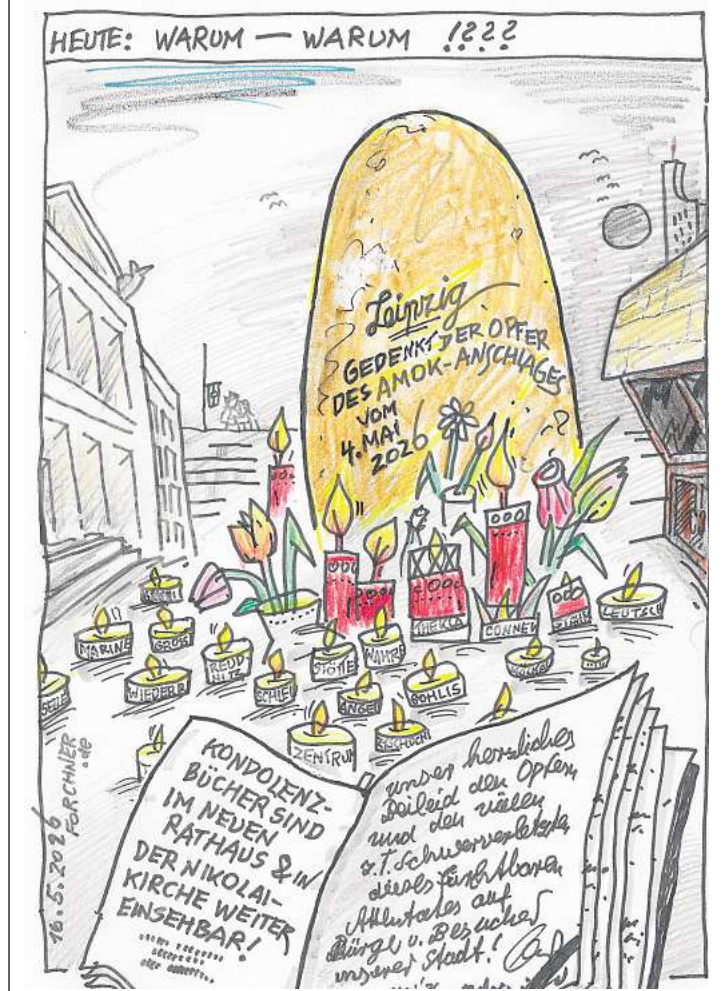 HEUTE: WARUM — WARUM !???
Leipzig
GEDENKT DER OPFER
DES AMOK-ANSCHLAGES
VOM
4. MAI
2026
MARINE
GROSS
REUD
NITZ
WIEDER
SCHLEU
STÖTTE
WAHRE
THEKLA
CONNEW
LEUTSCH
ANGER
GOHLIS
ZENTRUM
KONDOLENZ-
BÜCHER SIND
IM NEUEN
RATHAUS & IN
DER NIKOLAI-
KIRCHE WEITER
EINSEHBAR!
unser herzliches
Beileid den Opfern
und den vielen
z.T. Schwerverletzten
dieses furchtbaren
Attentates auf
Bürger u. Besucher
unserer Stadt!
16.5.2026
FORCHNER
.de